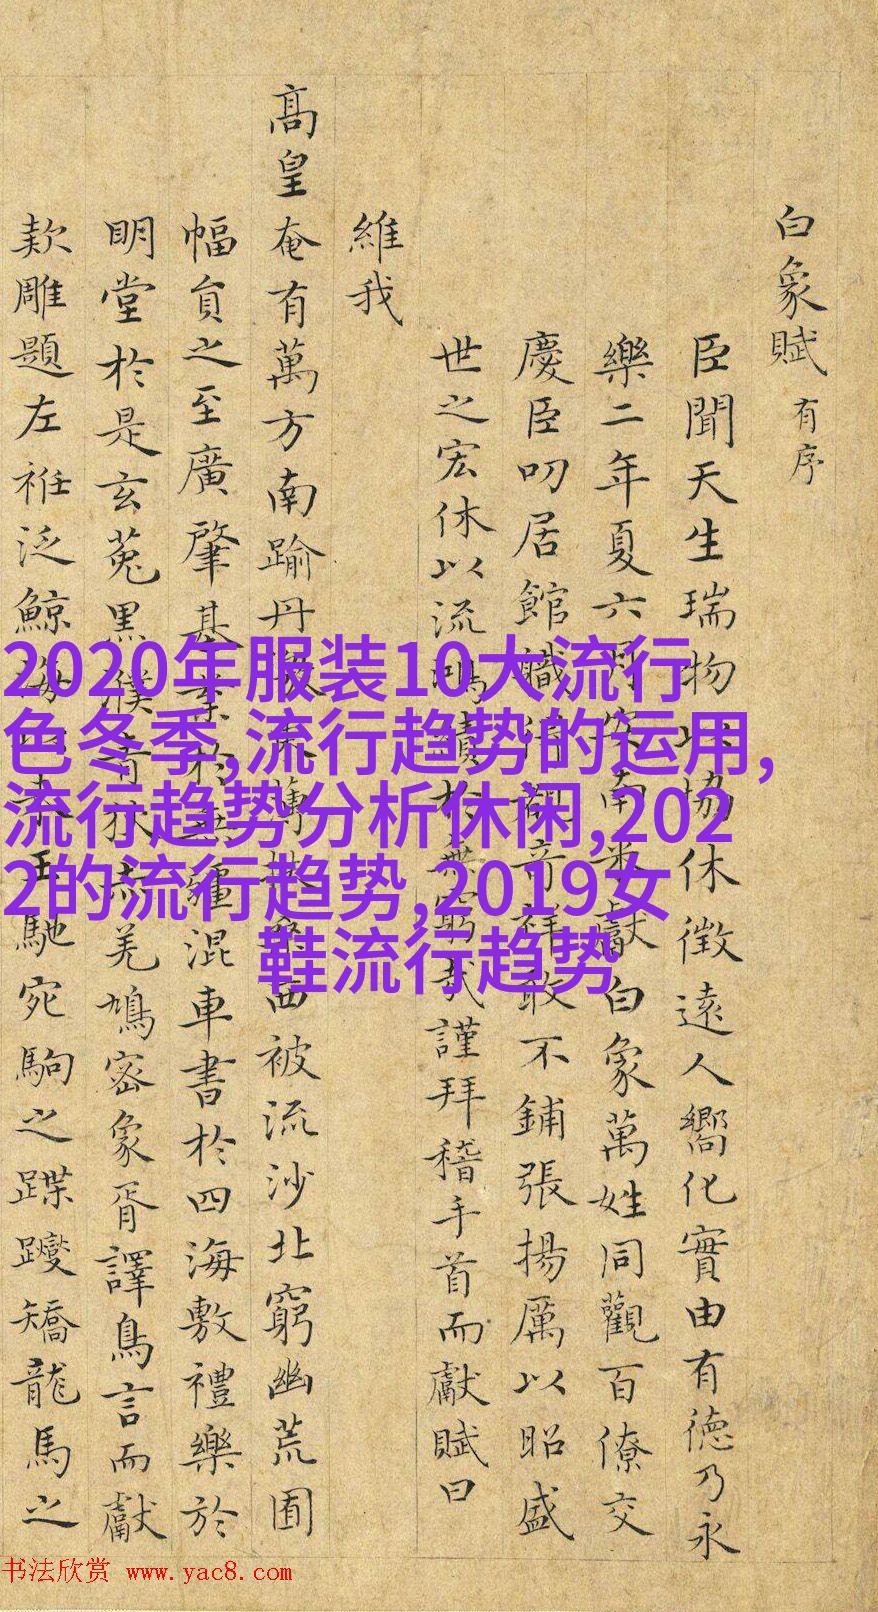 白象賦有序
臣聞天生瑞物以協休徵遠人嚮化實由有德乃永
樂二年夏六月安南來獻白象萬姓同觀百僚交
慶臣叨居館職得覩奇祥敢不鋪張揚厲以昭盛
世之宏休以流鴻績於無窮哉謹拜稽手首而獻賦曰
維我
高皇奄有萬方南踰丹 西被流沙北窮幽荒圃
幅員之至廣肇基 於無疆混車書於四海敷禮樂於
明堂於是玄菟黑濮青 羌鳩密象胥譯鳥言而獻
款雕題左祍泛鯨海 馳宛駒之蹀躞矯龍馬之
2020年服装10大流行
色冬季,流行趋势的运用,
流行趋势分析休闲,202
2的流行趋势,2019女
鞋流行趋势
书法欣赏 www.yac8.com